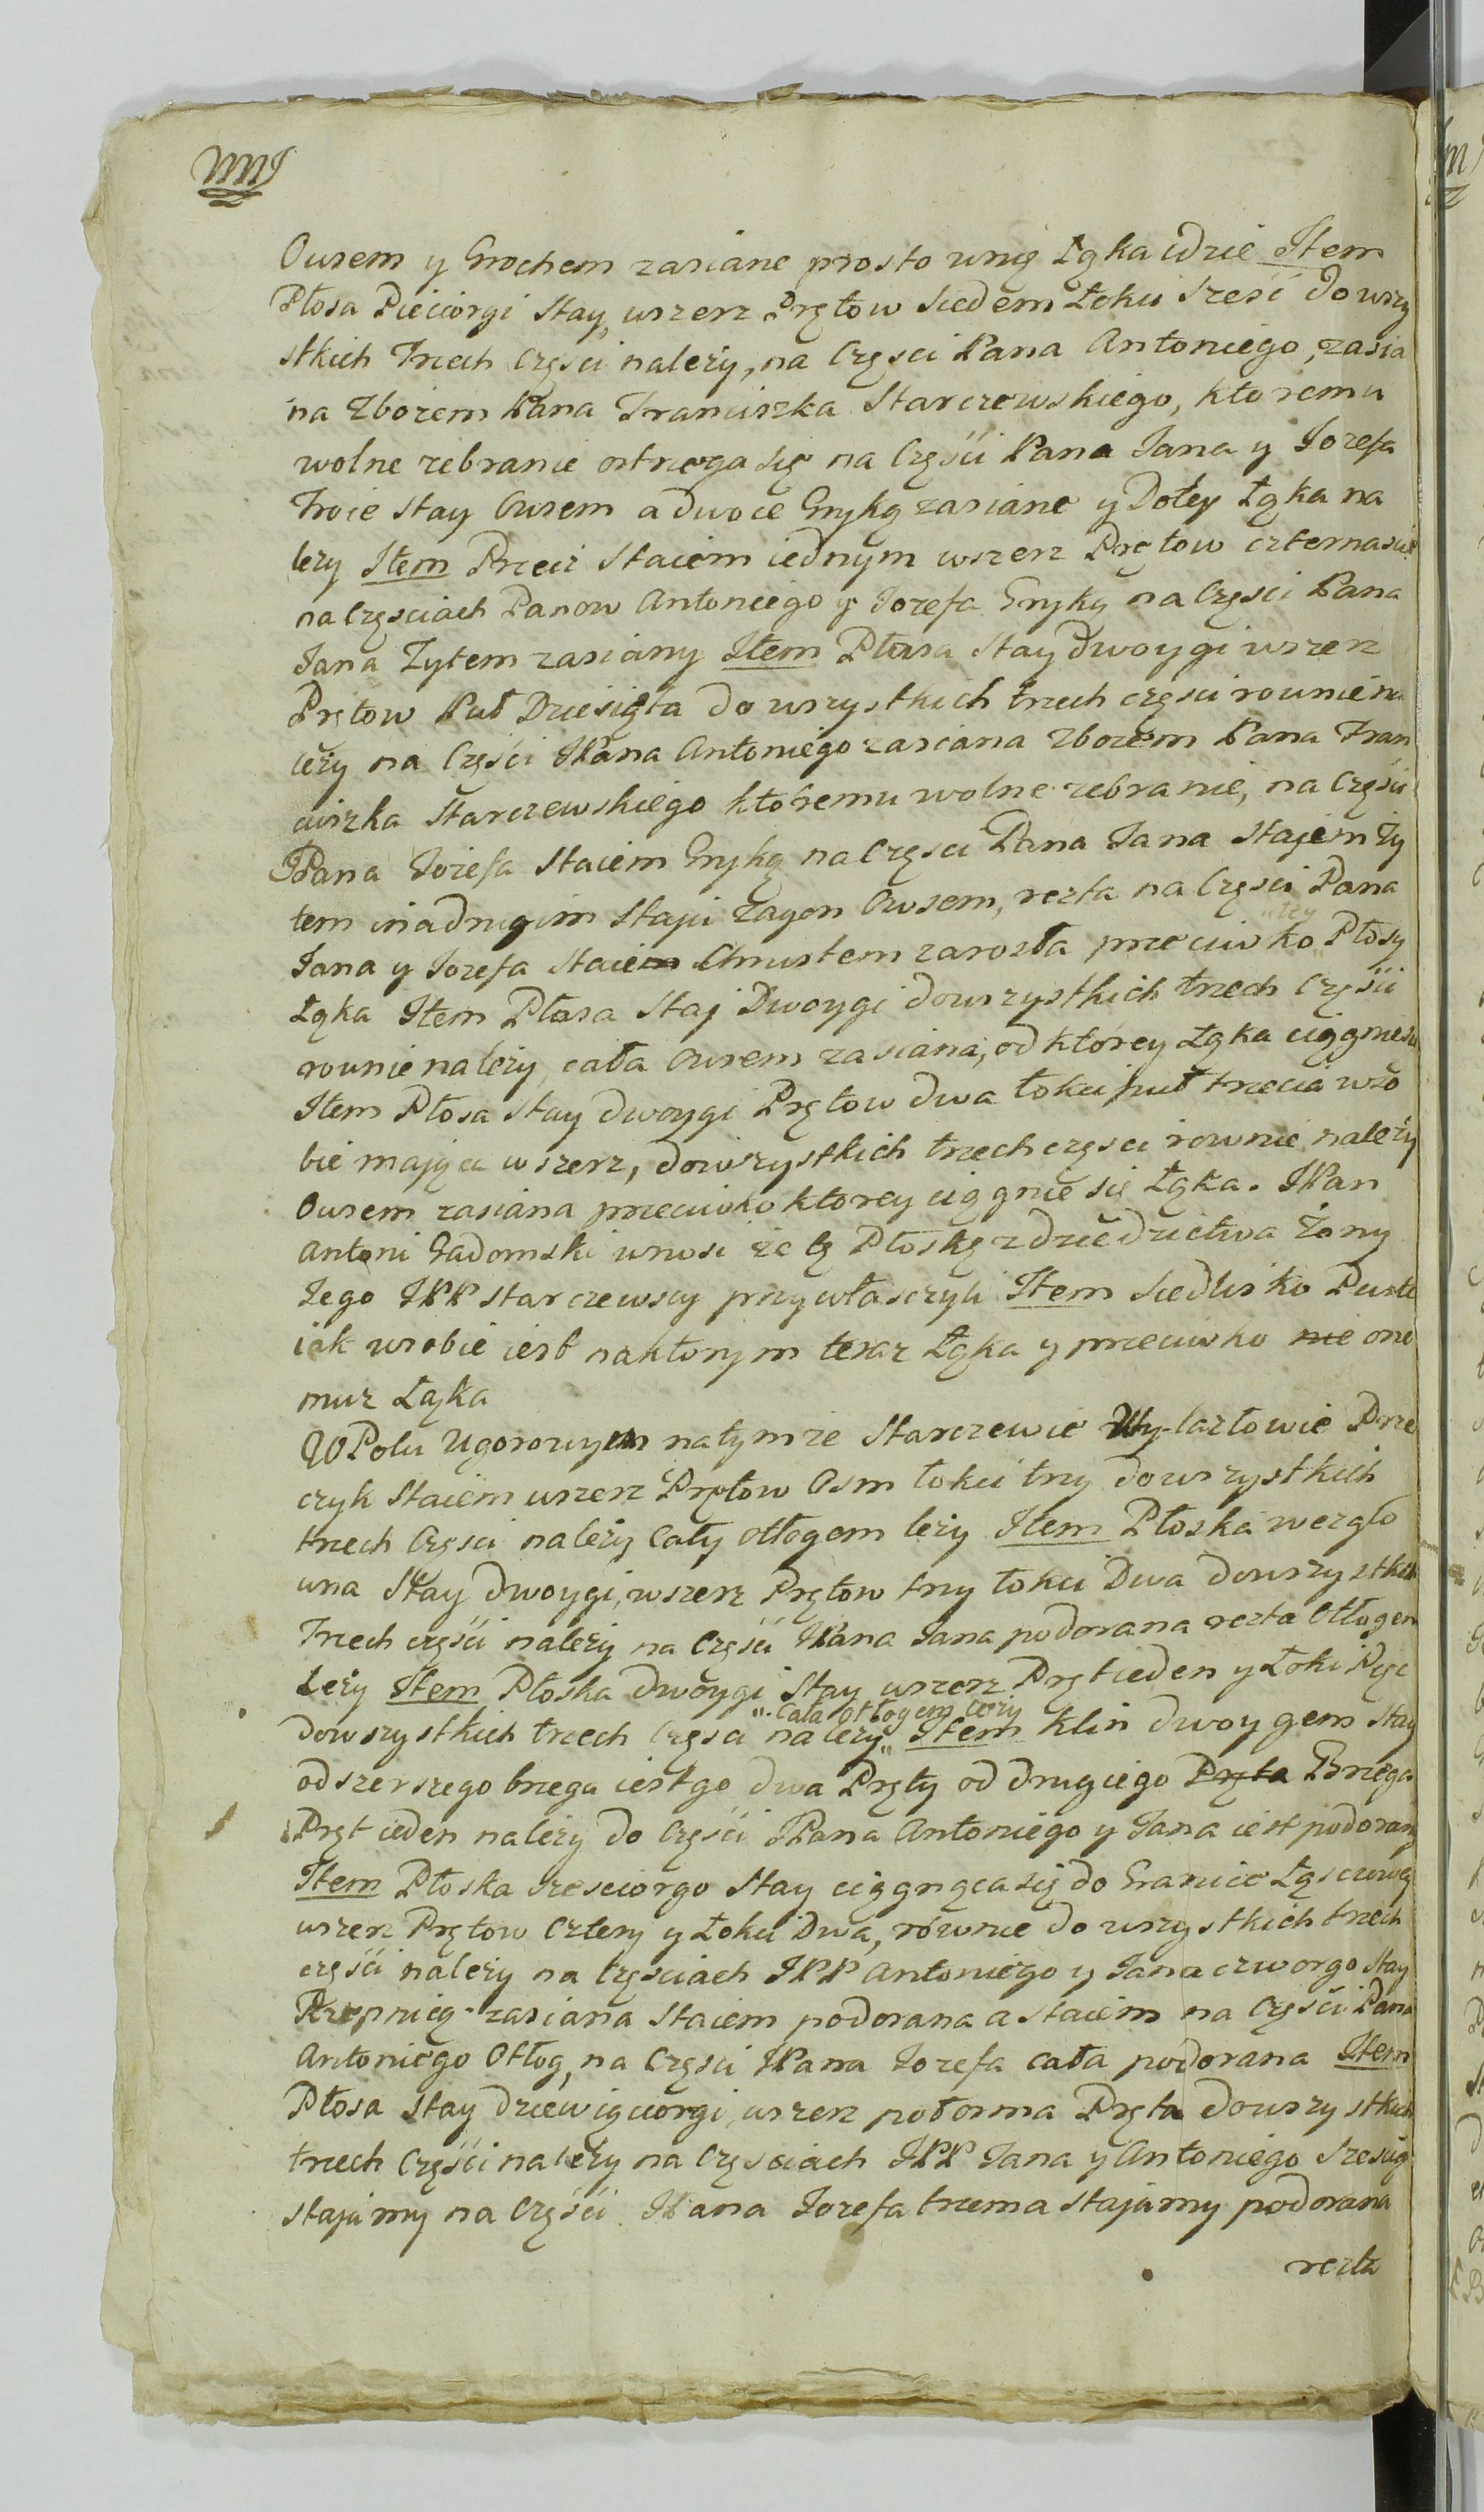 Owsem y Grochem zasiane prosto wnię Łąka idzie Item
Płosa Pieciorgi Stay, wszerz Prętow Siedem Łokci sześć do wszy
stkich Trzech Części należy, na Części Pana Antoniego, zasia
na Zbożem Pana Franciszka Starczewskiego, ktoremu
wolne zebranie ostrzega się na Części Pana Jana y Jozefa
Troie Stay Owsem a dwoie Gryką zasiane y Doley Łąka na
leży Item Przecz Staiem iednym wszerz Prętow czternascie
na Częsciach Panow Antoniego y Jozefa Gryką na Części Pana
Jana Żytem zasiany Item Płosa Stay Dwoygi wszerz
Prętow Puł Dziesięta do wszystkich trzech części rownie na
leży na Części JPana Antoniego zasiana Zbożem Pana Fran
ciszka Starczewskiego ktoremu wolne zebranie, na Części
JPana Jozefa Staiem Gryką na Części Pana Jana Stajem ży
tem i na drugim Staju Zagon Owsem, reszta na Części Pana
Jana y Jozefa Staiem Chrustem zarosła przeciwko "tey" Płosy
Łąka Item Płosa Staj Dwoygi do wszystkich trzech Części
rownie należy, cała Owsem zasiana, od ktorey Łąka ciągnie się
Item Płosa Stay dwoygi Prętow dwa łokci puł trzecia w so
bie mająca wszerz, do wszystkich trzech części rownie należy
Owsem zasiana przeciwko ktorey ciągnie się Łąka. JPan
Antoni Gadomski wnosi że tę Płoskę z dziedzictwa Żony
Jego JPP Starczewscy przywłaszczyli Item Siedlisko Puste
iak w sobie iest na ktorym teraz Łąka y przeciwko nie one
muz Łąka
W Polu Ugorowym na tymże Starczewie Wy-lazłowie Prze
czyk Staiem wszerz Prętow Osm łokci trzy do wszystkich
trzech Części należy Cały odłogem leży Item Płoska wezgło
wna Stay dwoygi, wszerz Prętow trzy łokci Dwa do wszystkich
Trzech części należy na Części JPana Jana podorana reszta Odłogem
Leży Item Płoska dwoygi Stay wszerz Pręt ieden y Łokci Pięć
do wszystkich trzech Części należy "Cała Odłogem leży" Item klin dwoygem Stay
od szerszego brzega iest go dwa Pręty od drugiego Pręta Brzega
Pręt ieden należy do Części JPana Antoniego y Jana iest podorany
Item Płoska szesciorgo Stay ciągnąca się do Granic
wszerz Prętow Cztery y Łokci Dwa, rownie do wszystkich trzech
części należy na Częsciach JPP Antoniego y Jana czworgo Stay
Rzepnicą zasiana Staiem podorana a Staiem na Części Pana
Antoniego Odłog, na Części JPana Jozefa cała podorana Item
Płosa Stay dziewięciorgi, wszerz połosma Pręta do wszystkich
trzech Części należy na Częsciach JPP Jana y Antoniego sześcią
stajamy na Części JPana Jozefa trzema stajamy podorana
reszta